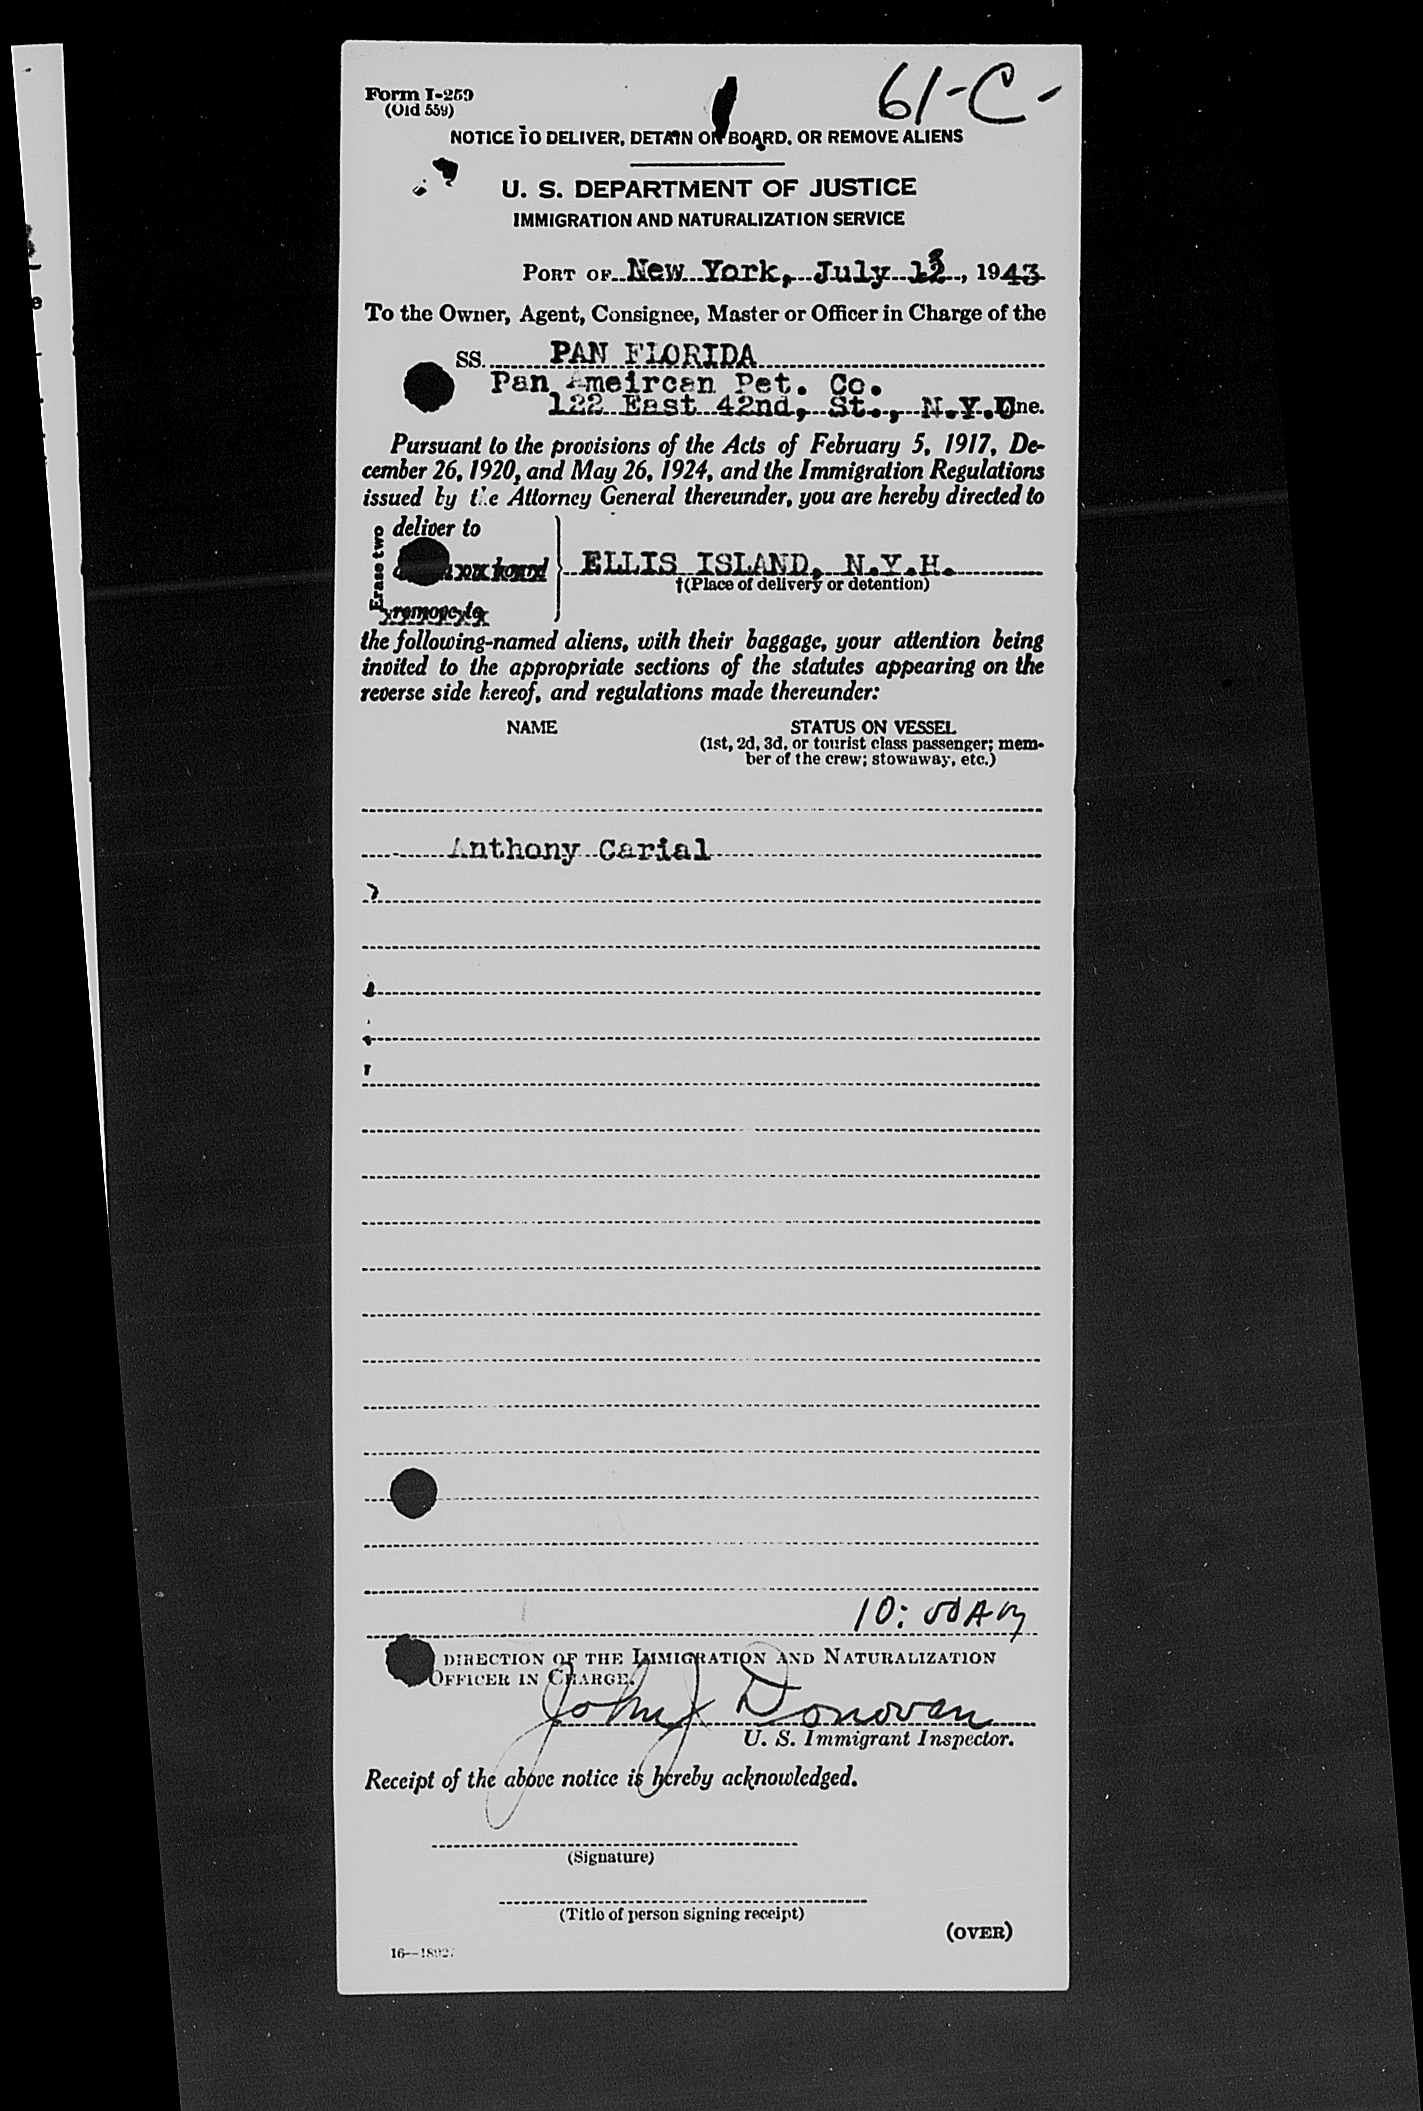 Form I-259
(Old 559)
61-C-
NOTICE TO DELIVER, DETAIN ON BOARD, OR REMOVE ALIENS
U. S. DEPARTMENT OF JUSTICE
IMMIGRATION AND NATURALIZATION SERVICE
PORT OF New York, July , 1943
To the Owner, Agent, Consignee, Master or Officer in Charge of the
SS. PAN FLORIDA
Pan Ameircan Pet. Co.
122 East 42nd, St., N.Y. ne.
Pursuant to the provisions of the Acts of February 5, 1917, De-
cember 26, 1920, and May 26, 1924, and the Immigration Regulations
issued by the Attorney General thereunder, you are hereby directed to
Erase two
deliver to
board
remove to
ELLIS ISLAND, N.Y.H.
†(Place of delivery or detention)
the following-named aliens, with their baggage, your attention being
invited to the appropriate sections of the statutes appearing on the
reverse side hereof, and regulations made thereunder:
NAME STATUS ON VESSEL
(1st, 2d, 3d, or tourist class passenger; mem-
ber of the crew; stowaway, etc.)
Anthony Carial
10:00AM
DIRECTION OF THE IMMIGRATION AND NATURALIZATION
OFFICER IN CHARGE.
John J Donovan
U. S. Immigrant Inspector.
Receipt of the above notice is hereby acknowledged.
(Signature)
(Title of person signing receipt)
(OVER)